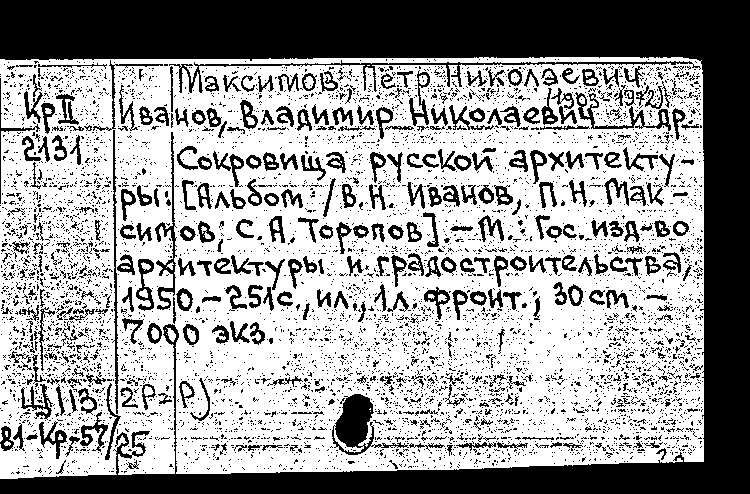 Максимов, Пётр Николаевич
(1903-1972)
КрII Иванов, Владимир Николаевич и др.
2131 Сокровища русской архитекту-
ры: [Альбом / В.Н. Иванов, П.Н. Мак-
симов, С.А. Торопов]. – М.: Гос. изд-во
архитектуры и градостроительства,
1950. – 251с., ил., 1 л. фронт.; 30 cm. –
7000 экз.
Щ113(2Р=Р)
81-Кр-57/25